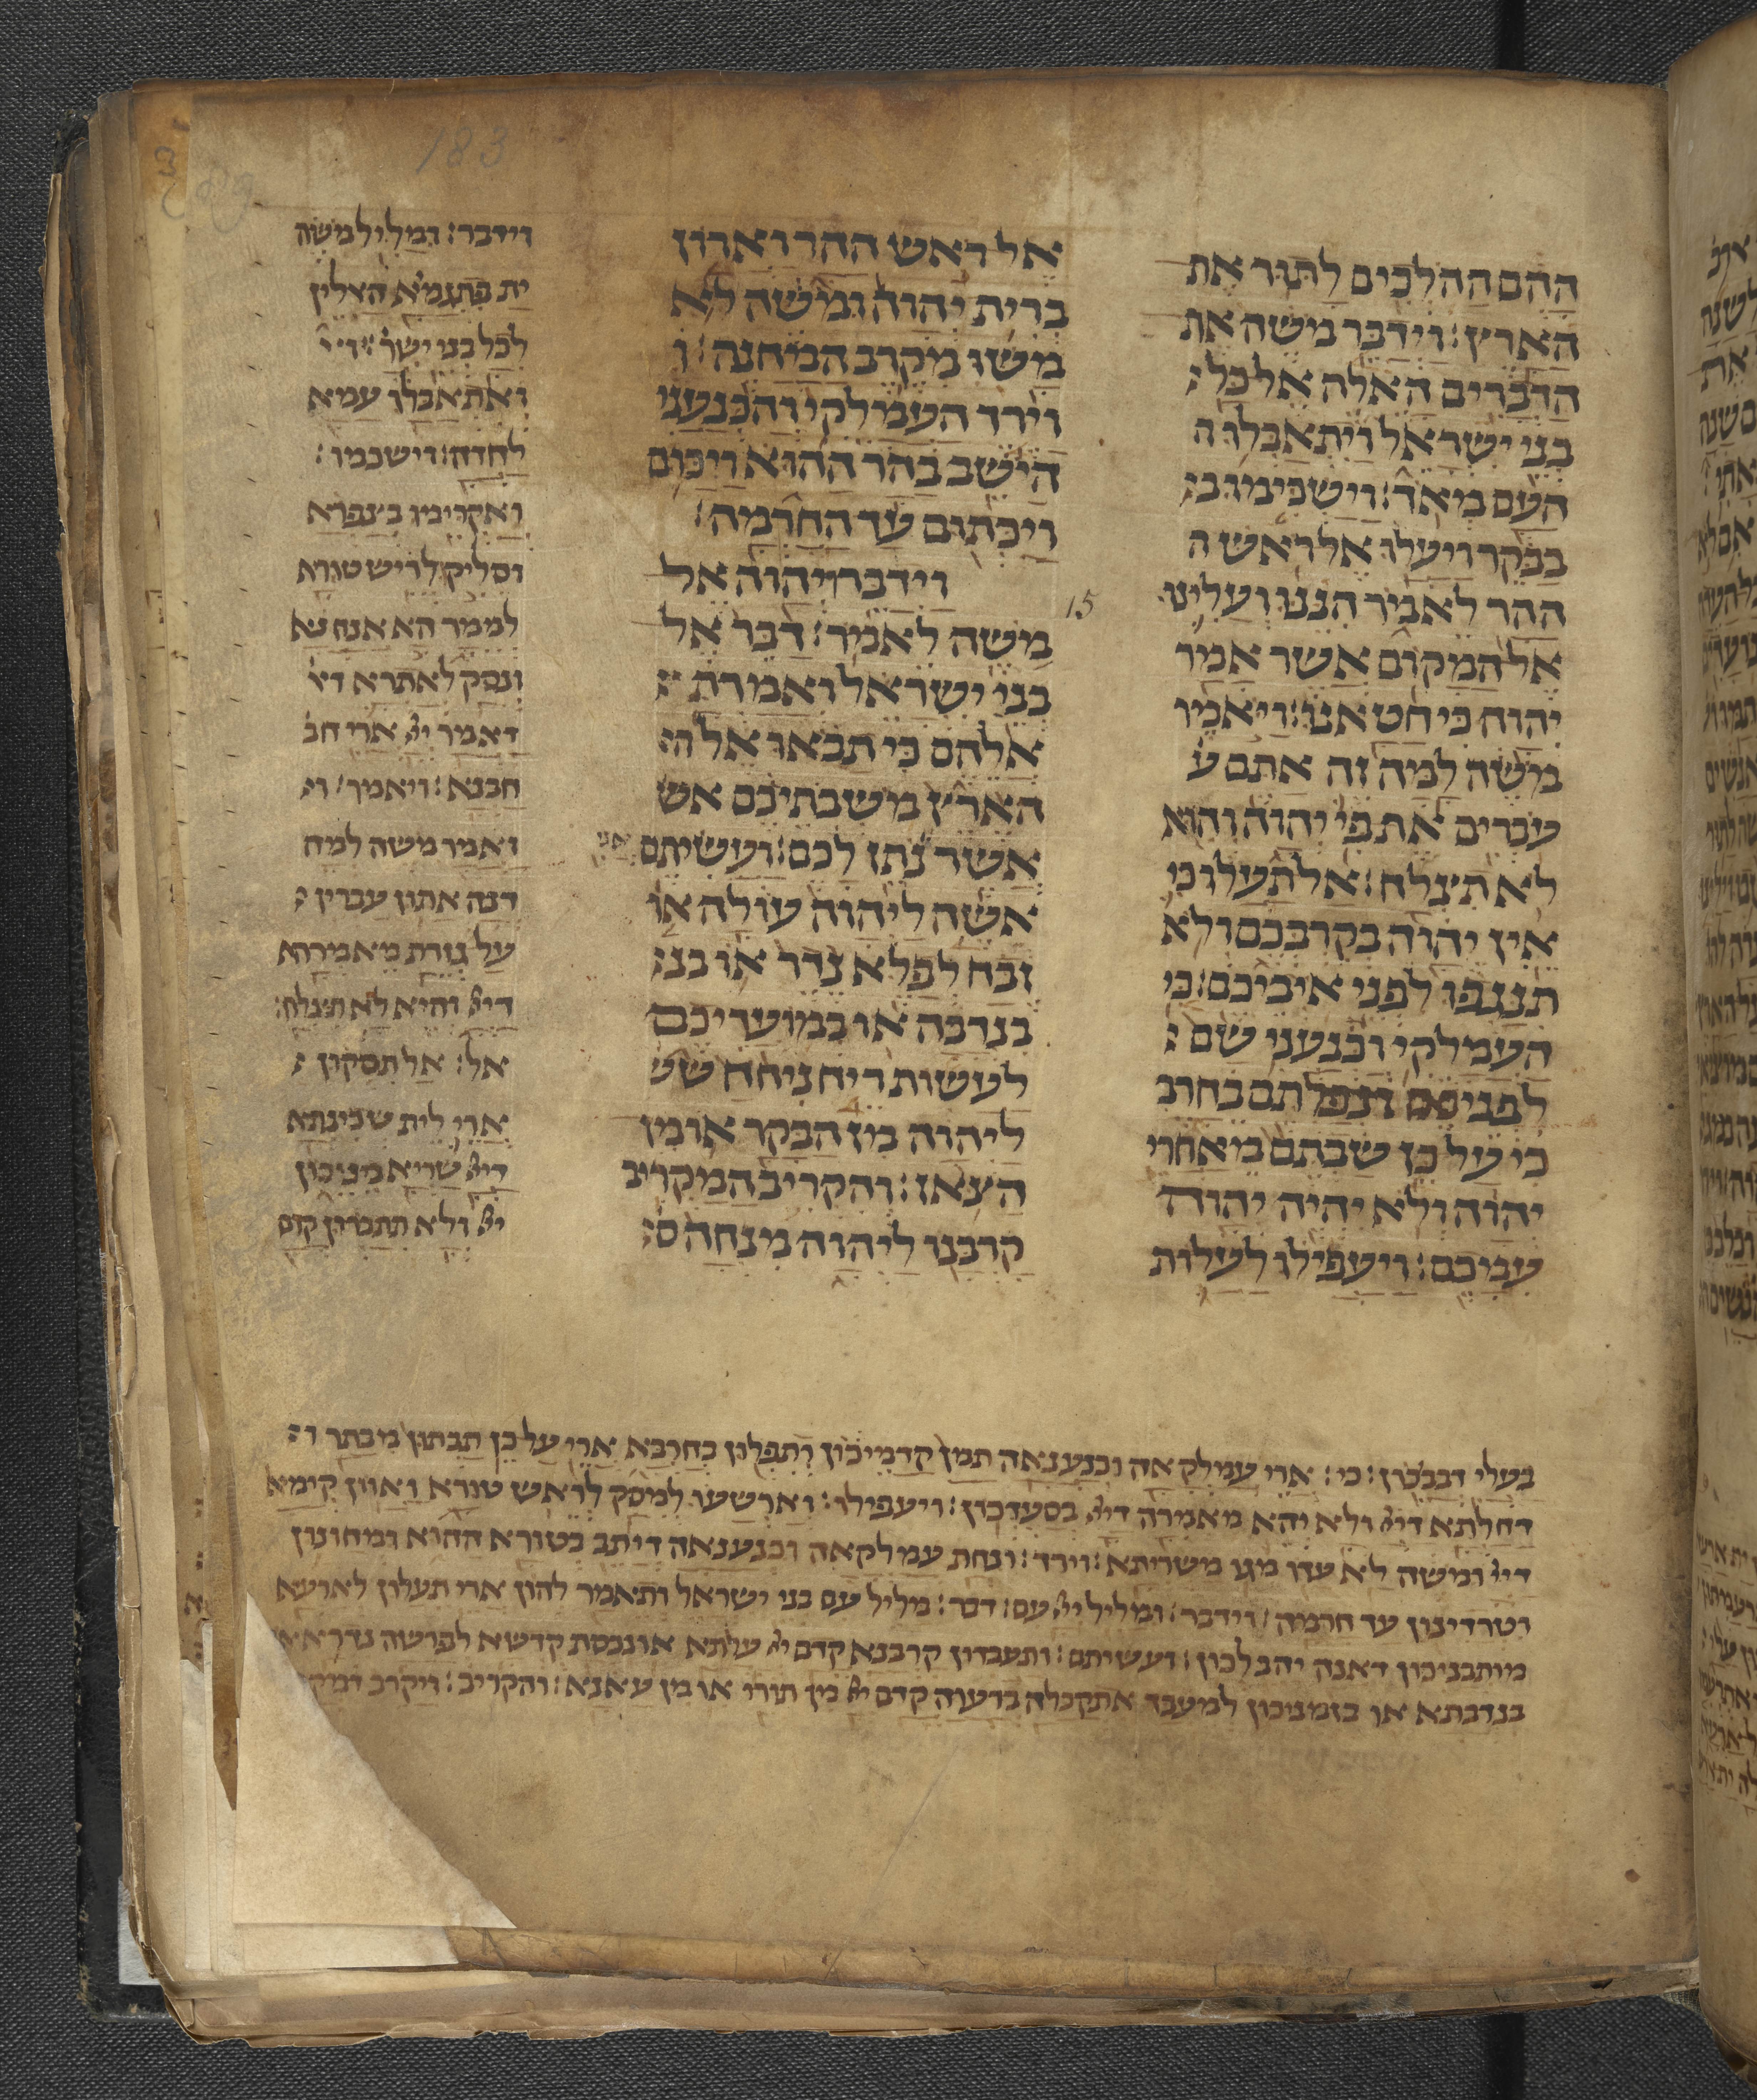 183
ההם ההלכים לתור את
הארץ: וידבר משה את
הדברים האלה אל כל
בני ישראל ויתאבלו ה
העם מאד: וישכימו ב
בבקר ויעלו אל ראש ה
ההר לאמר הננו ועלינו
אל המקום אשר אמר
יהוה כי חטאנו: ויאמר
משה למה זה אתם ע
עברים את פי יהוה והוא
לא תצלח: אל תעלו כי
אין יהוה בקרבכם ולא
תנגפו לפני איביכם: כי
העמלקי והכנעני שם
לפניכם ונפלתם בחרב
כי על כן שבתם מאחרי
יהוה ולא יהיה יהוה
עמכם: ויעפילו לעלות
אל ראש ההר וארון
ברית יהוה ומשה לא
משו מקרב המחנה: ו
וירד העמלקי והכנעני
הישב בהר ההוא ויכום
ויכתום עד החרמה:
15
וידבר יהוה אל
משה לאמר: דבר אל
בני ישראל ואמרת
אלהם כי תבאו אל ה
הארץ משבתיכם אש
אשר נתן לכם: ועשיתם
אשה ליהוה עולה או
זבח לפלא נדר או בנ
בנדבה או במועדיכם
לעשות ריח ניחח
ליהוה מן הבקר או מן
הצאן: והקריב המקריב
קרבנו ליהוה מנחה ס
וידבר: ומליל משה
ית פתגמיא האלין
לכל בני ישר
ואתאבלו עמא
לחדה: וישכמו:
ואקדימו בצפרא
וסליקו לריש טורא
למימר הא אנחנא
ונסק לאתרא די
דאמר ייי ארי חב
חבנא: ויאמר: ו
ואמר משה למה
דנה אתון עברין
על גזרת מאמרא
דייי והיא לא תצלח:
אל: אל תסקון
ארי לית שכינתא
דייי שריא ביניכון
ייי ולא תתברון קדם
בעלי דבבכון: כי: ארי עמלקאה וכנענאה תמן קדמיכון ותפלון בחרבא ארי על כן תבתון מבתר ו
דחלתא דייי ולא יהא מאמרה דייי בסעדכון: ויעפילו: וארשעו למסק לראש טורא וארון קימא
דייי ומשה לא עדו מגו משריתא: וירד: ונחת עמלקאה וכנענאה דיתב בטורא ההוא ומחונון
וטרדינון עד חרמה: וידבר: ומליל ייי עם: דבר: מליל עם בני ישראל ותאמר להון ארי תעלון לארעא
מותבניכון דאנה יהב לכון: ועשיתם: ותעבדון קרבנא קדם ייי עלתא או נכסת קדשא לפרשה נדרא
בנדבתא או בזמניכון למעבד אתקבלה ברעוה קדם ייי מן תורי או מן ענא: והקריב: ויקרב דמק